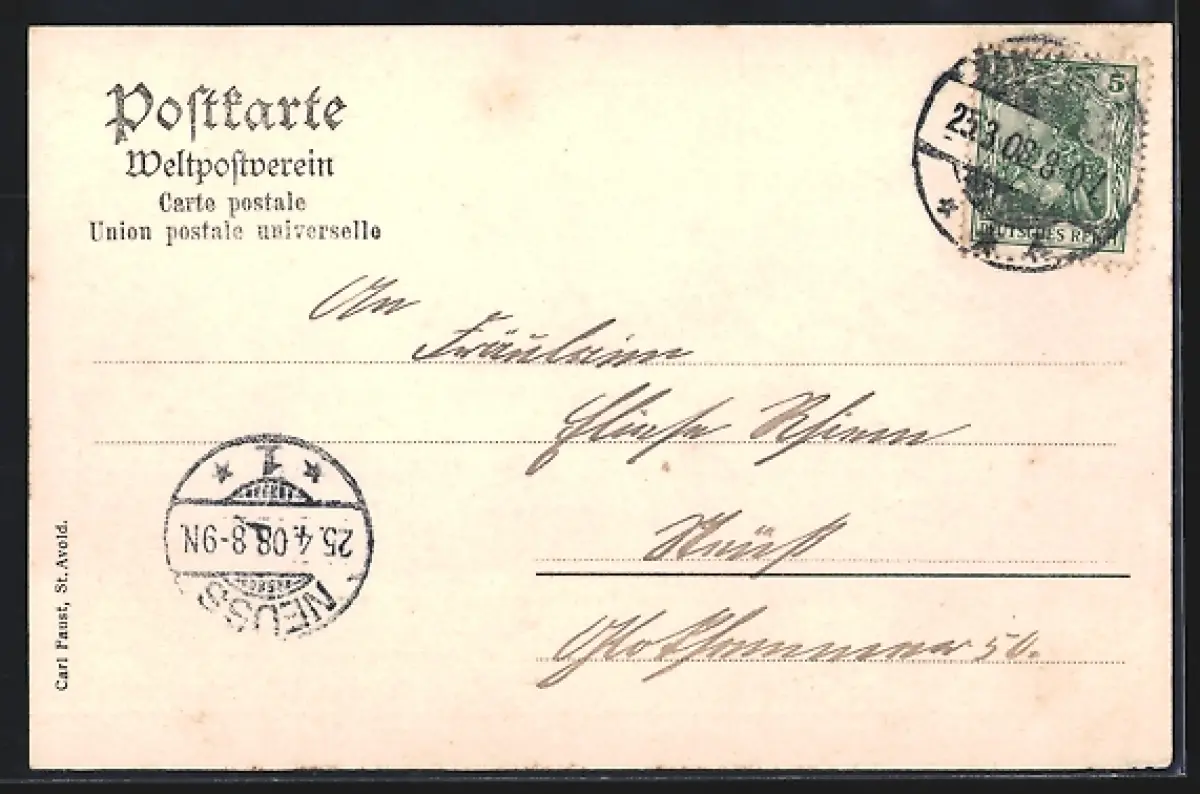 Postkarte
Weltpostverein
Carte postale
Union postale universelle
5
25.3.08.8-0
DEUTSCHES REICH
An
Fräulein
Neuß
50.
1
25.4.08.8-9N.
NEUSS
Carl Faust, St. Avold.